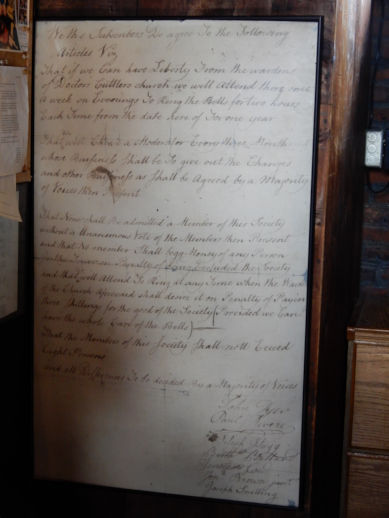 We the Subscribers Do agree To the Following
Articles Viz
That if we Can have Liberty From the wardens
of Doctor Cuttlers church we will Attend there once
a week on Evenings To Ring the Bells for two hours
Each Time from the date here of For one year
That we will Chuse a Moderator Every three Months
whose Business Shall be To give out the Changes
and other Business as Shall be Agreed by a Majority
of Voices then Present
That None shall Be admitted a Member of this Society
without a Unanimous Vote of the Members then Present
and that No member Shall begg Money of any Person
in the Tower on Penalty of Being Excluded the Society
and that we will Attend To Ring at any Time when the Wardens
of the Church Aforesaid shall desire it on Penalty of Paying
three Shillings for the good of the Society Provided we Can
have the whole Care of the Bells
That the Members of this Society Shall nott Exceed
Eight Persons
and all Differences To be decided by a Majority of Voices
John Dyer
Paul Revere
Josiah Flagg
Barthw Ballard
Jonathan Law
Jona Brown junr
Joseph Snelling